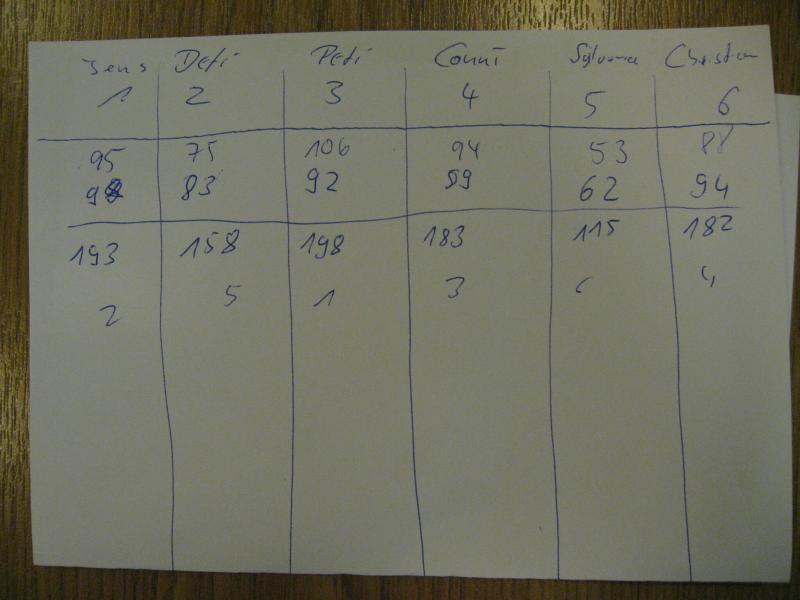 Jens Defi Peti Conni Sylvana Christian
1 2 3 4 5 6
95 75 106 94 53 88
98 83 92 89 62 94
193 158 198 183 115 182
2 5 1 3 6 4